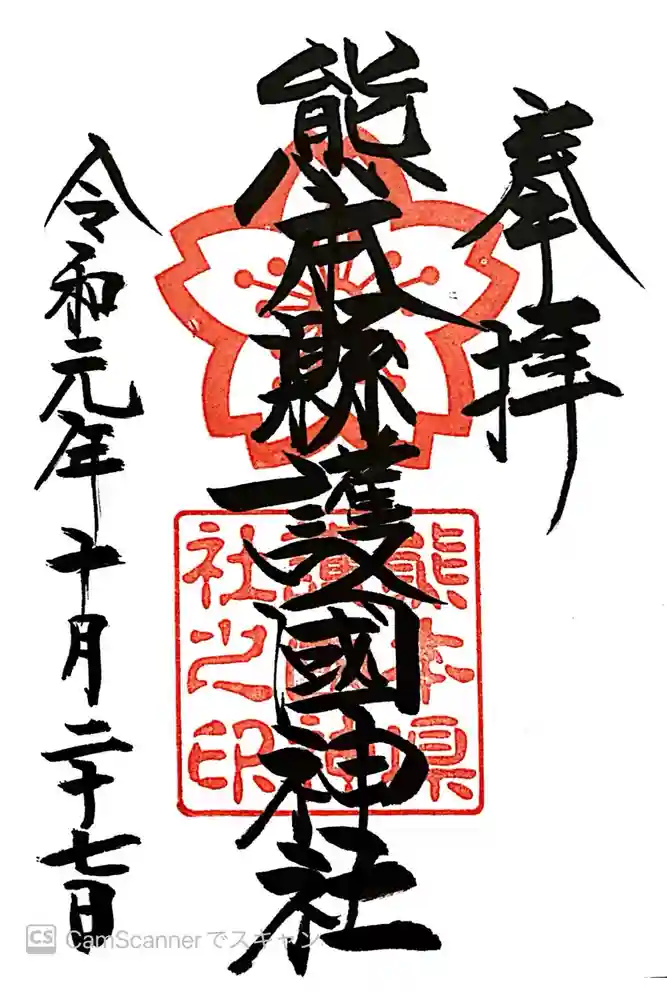 奉拝
熊本縣護國神社
熊本県
護国神
社之印
令和元年十月二十七日
CS CamScannerでスキャン